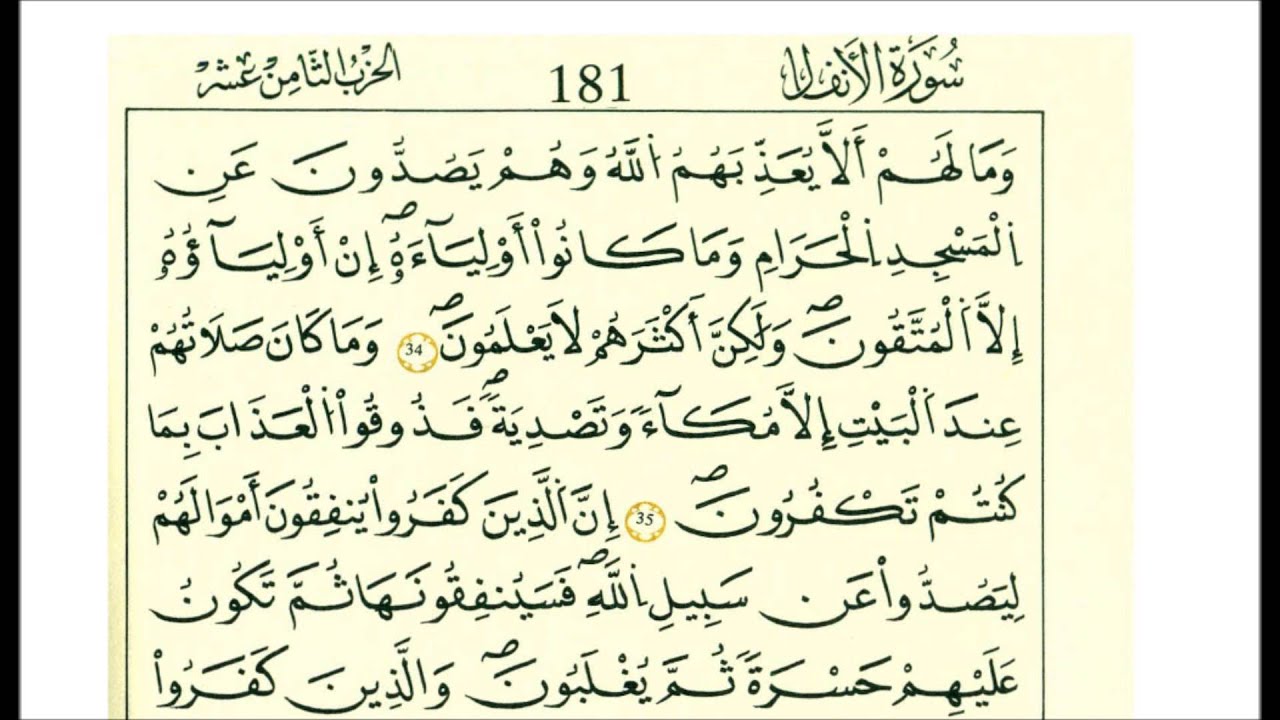 سُورَةُ الأَنفَال 181 الحِزْبُ الثَّامِن عَشَرَ
وَمَا لَهُمْ أَلاَّ يُعَذِّبَهُمُ اُللَّهُ وَهُمْ يَصُدُّونَ عَنِ
اِلْمَسْجِدِ اِلْحَرَامِ وَمَا كَانُواْ أَوْلِيَآءَهُۥٓ إِنْ أَوْلِيَآؤُهُۥ
إِلاَّ اَلْمُتَّقُونَۖ وَلَٰكِنَّ أَكْثَرَهُمْ لاَ يَعْلَمُونَۖ 34 وَمَا كَانَ صَلَاتُهُمْ
عِندَ اَلْبَيْتِ إِلاَّ مُكَآءً وَتَصْدِيَةًۖ فَذُوقُواْ اُلْعَذَابَ بِمَا
كُنتُمْ تَكْفُرُونَۖ 35 إِنَّ اَلَّذِينَ كَفَرُواْ يُنفِقُونَ أَمْوَالَهُمْ
لِيَصُدُّواْ عَن سَبِيلِ اِللَّهِۖ فَسَيُنفِقُونَهَا ثُمَّ تَكُونُ
عَلَيْهِمْ حَسْرَةً ثُمَّ يُغْلَبُونَۖ وَالَّذِينَ كَفَرُواْ